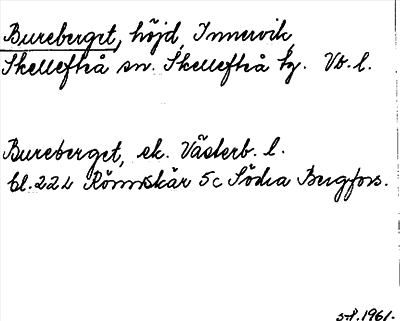 Bureberget, höjd, Innervik,
Skellefteå sn. Skellefteå kg. Vb. l.
Bureberget, ek. Västerb. l.
bl. 22 L Rönnskär 5c Södra Bergfors.
s-f. 1961.